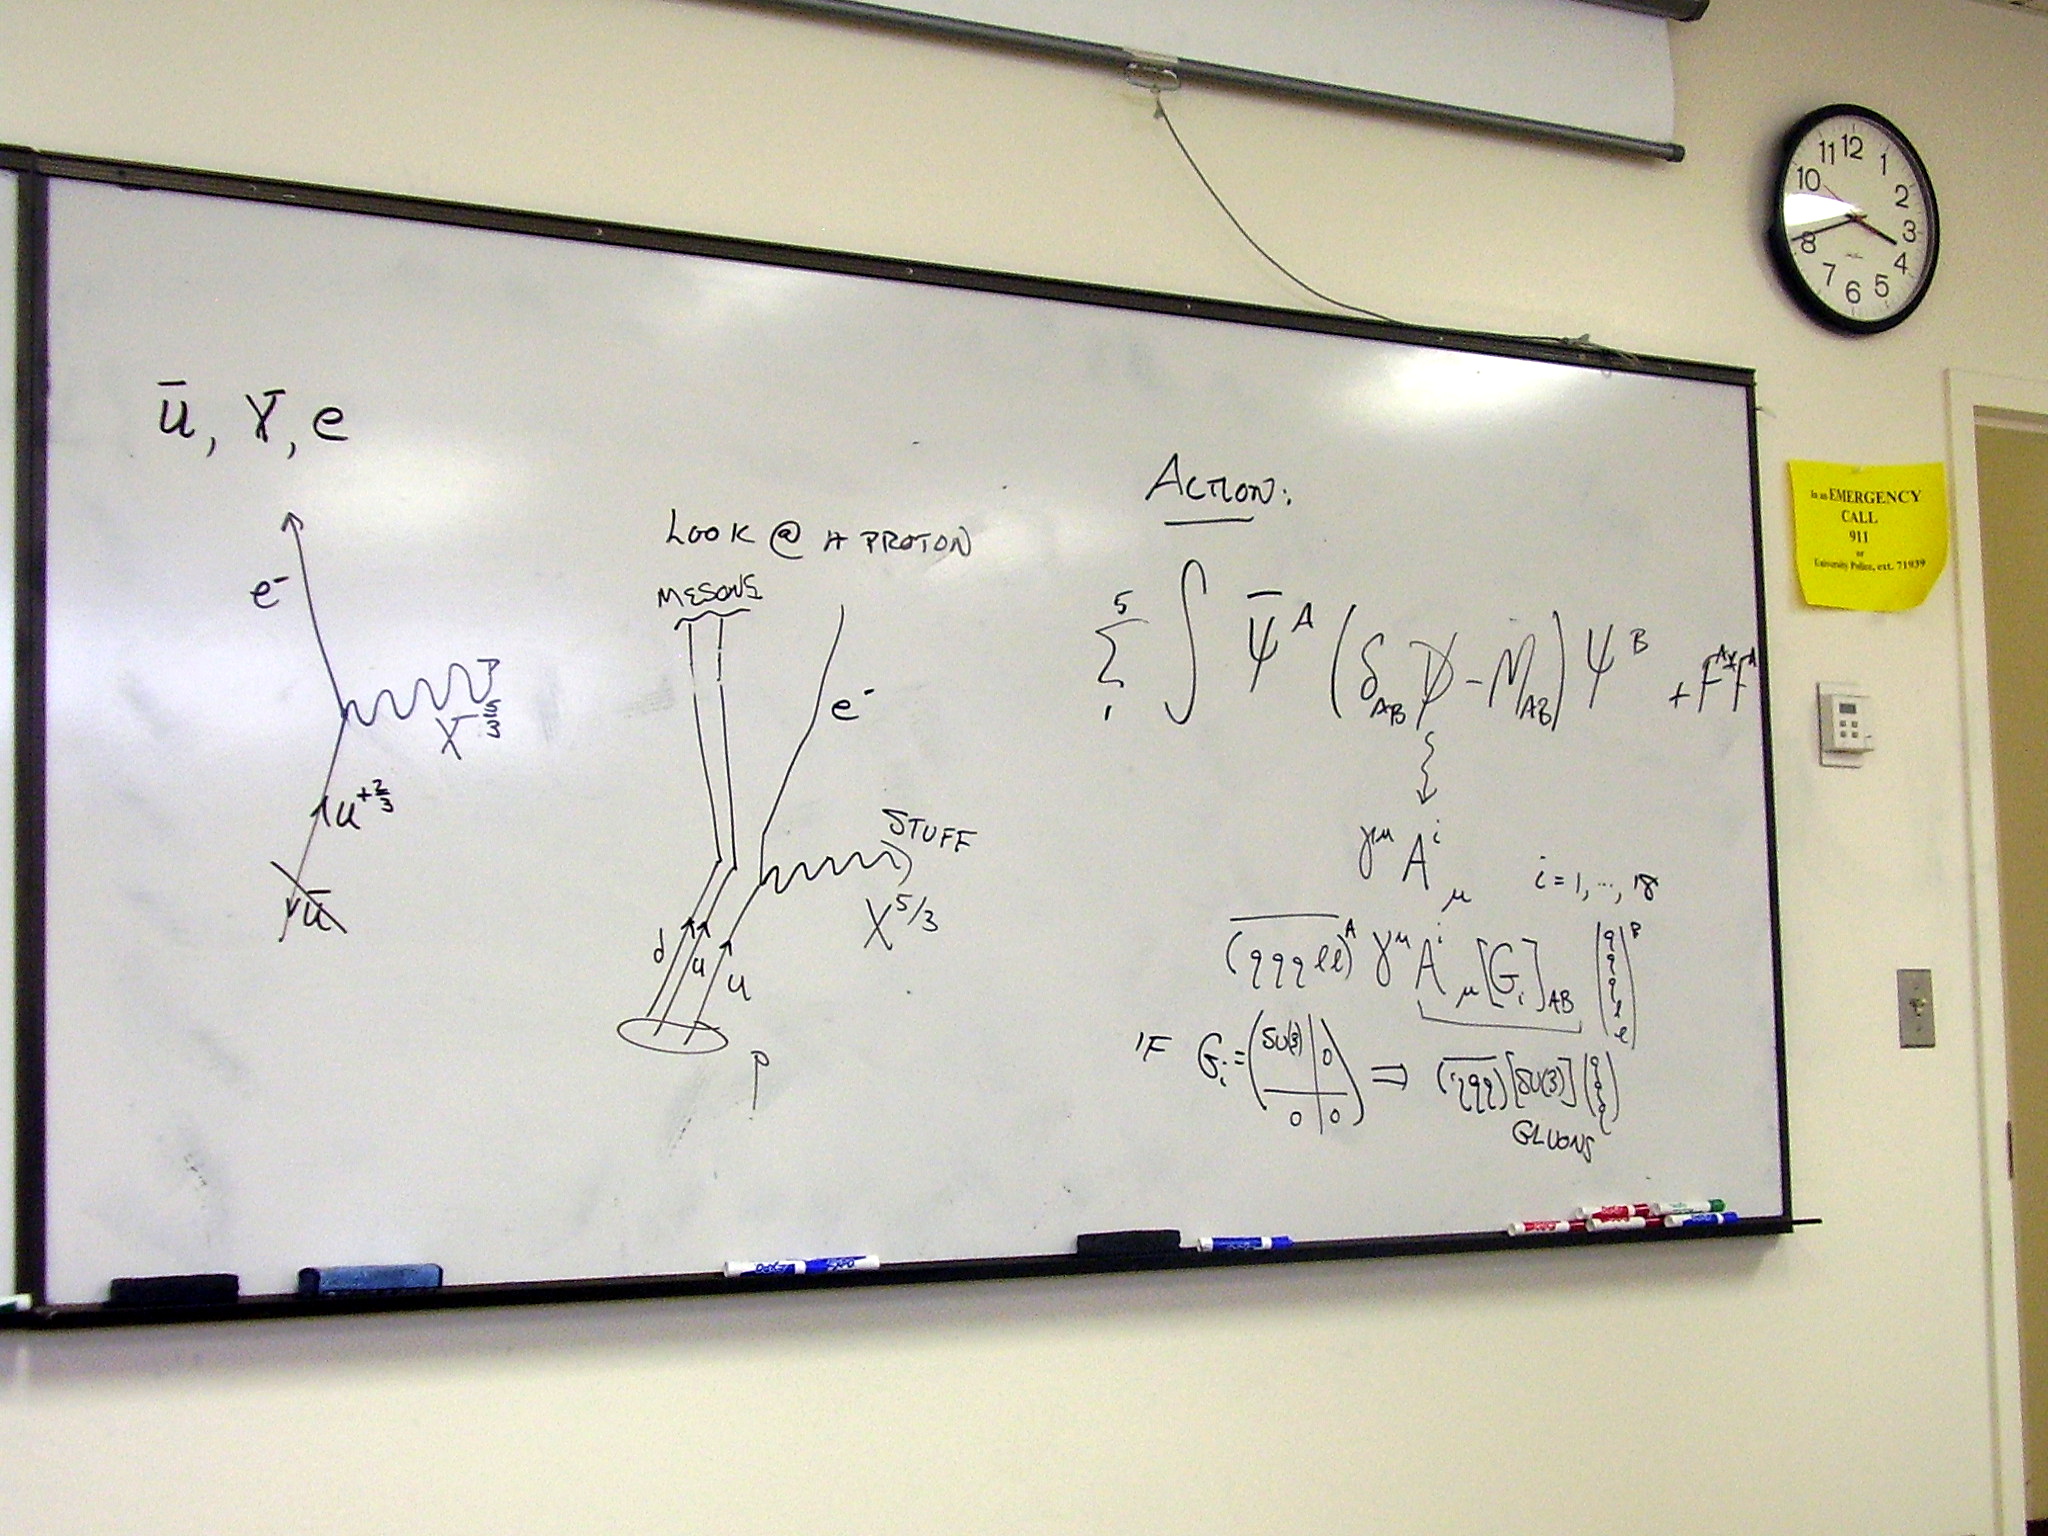 ū, X̄, e
e⁻
X 5/3
u +2/3
ū
LOOK @ A PROTON
MESONS
e⁻
STUFF
X 5/3
d u u
P
ACTION:
5 ∑ 1 ∫ ψ̄ᴬ (δ_AB D̸ - M_AB) ψᴮ + Fᴬ*Fᴬ
γ^μ A^i_μ i = 1, ..., 18
(qqqll)ᴬ γ^μ A^i_μ [G_i]_AB (q q q l l)ᴮ
IF G_i = (SU(3) 0 0 0) ⇒ (qqq) [SU(3)] (q q q)
GLUONS
12 1 2 3 4 5 6 7 8 10 11
in an EMERGENCY
CALL
911
or
University Police, ext. 71939
EXPO